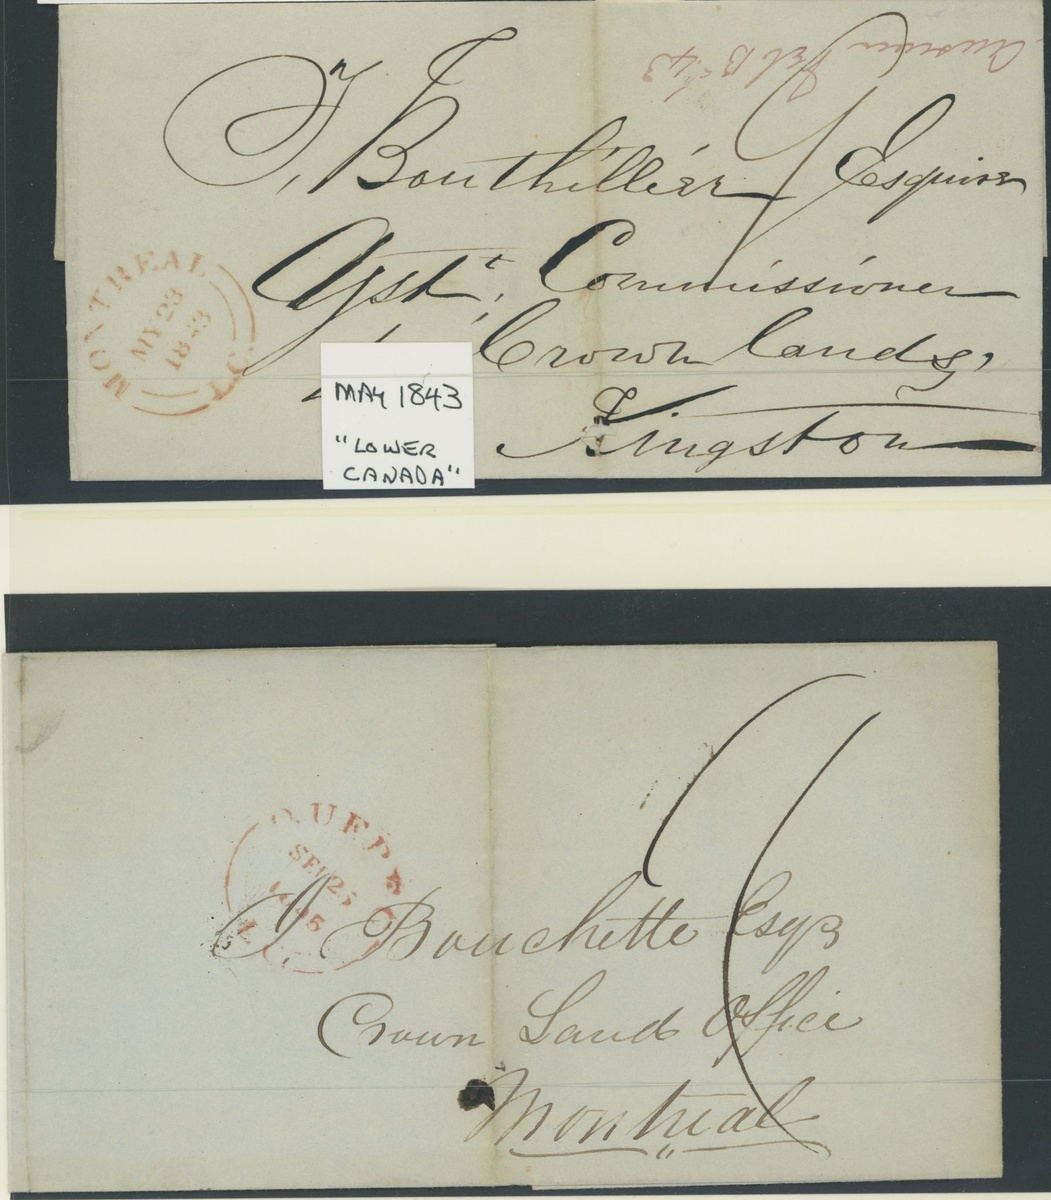 T, Bouthillier Esquire
Asst, Commissioner
Crown lands,
Kingston
MONTREAL L.C.
MY 23
1843
MAY 1843
"LOWER
CANADA"
QUEBEC
SE 25
Bouchette Esqr
Crown Land Office
Montreal